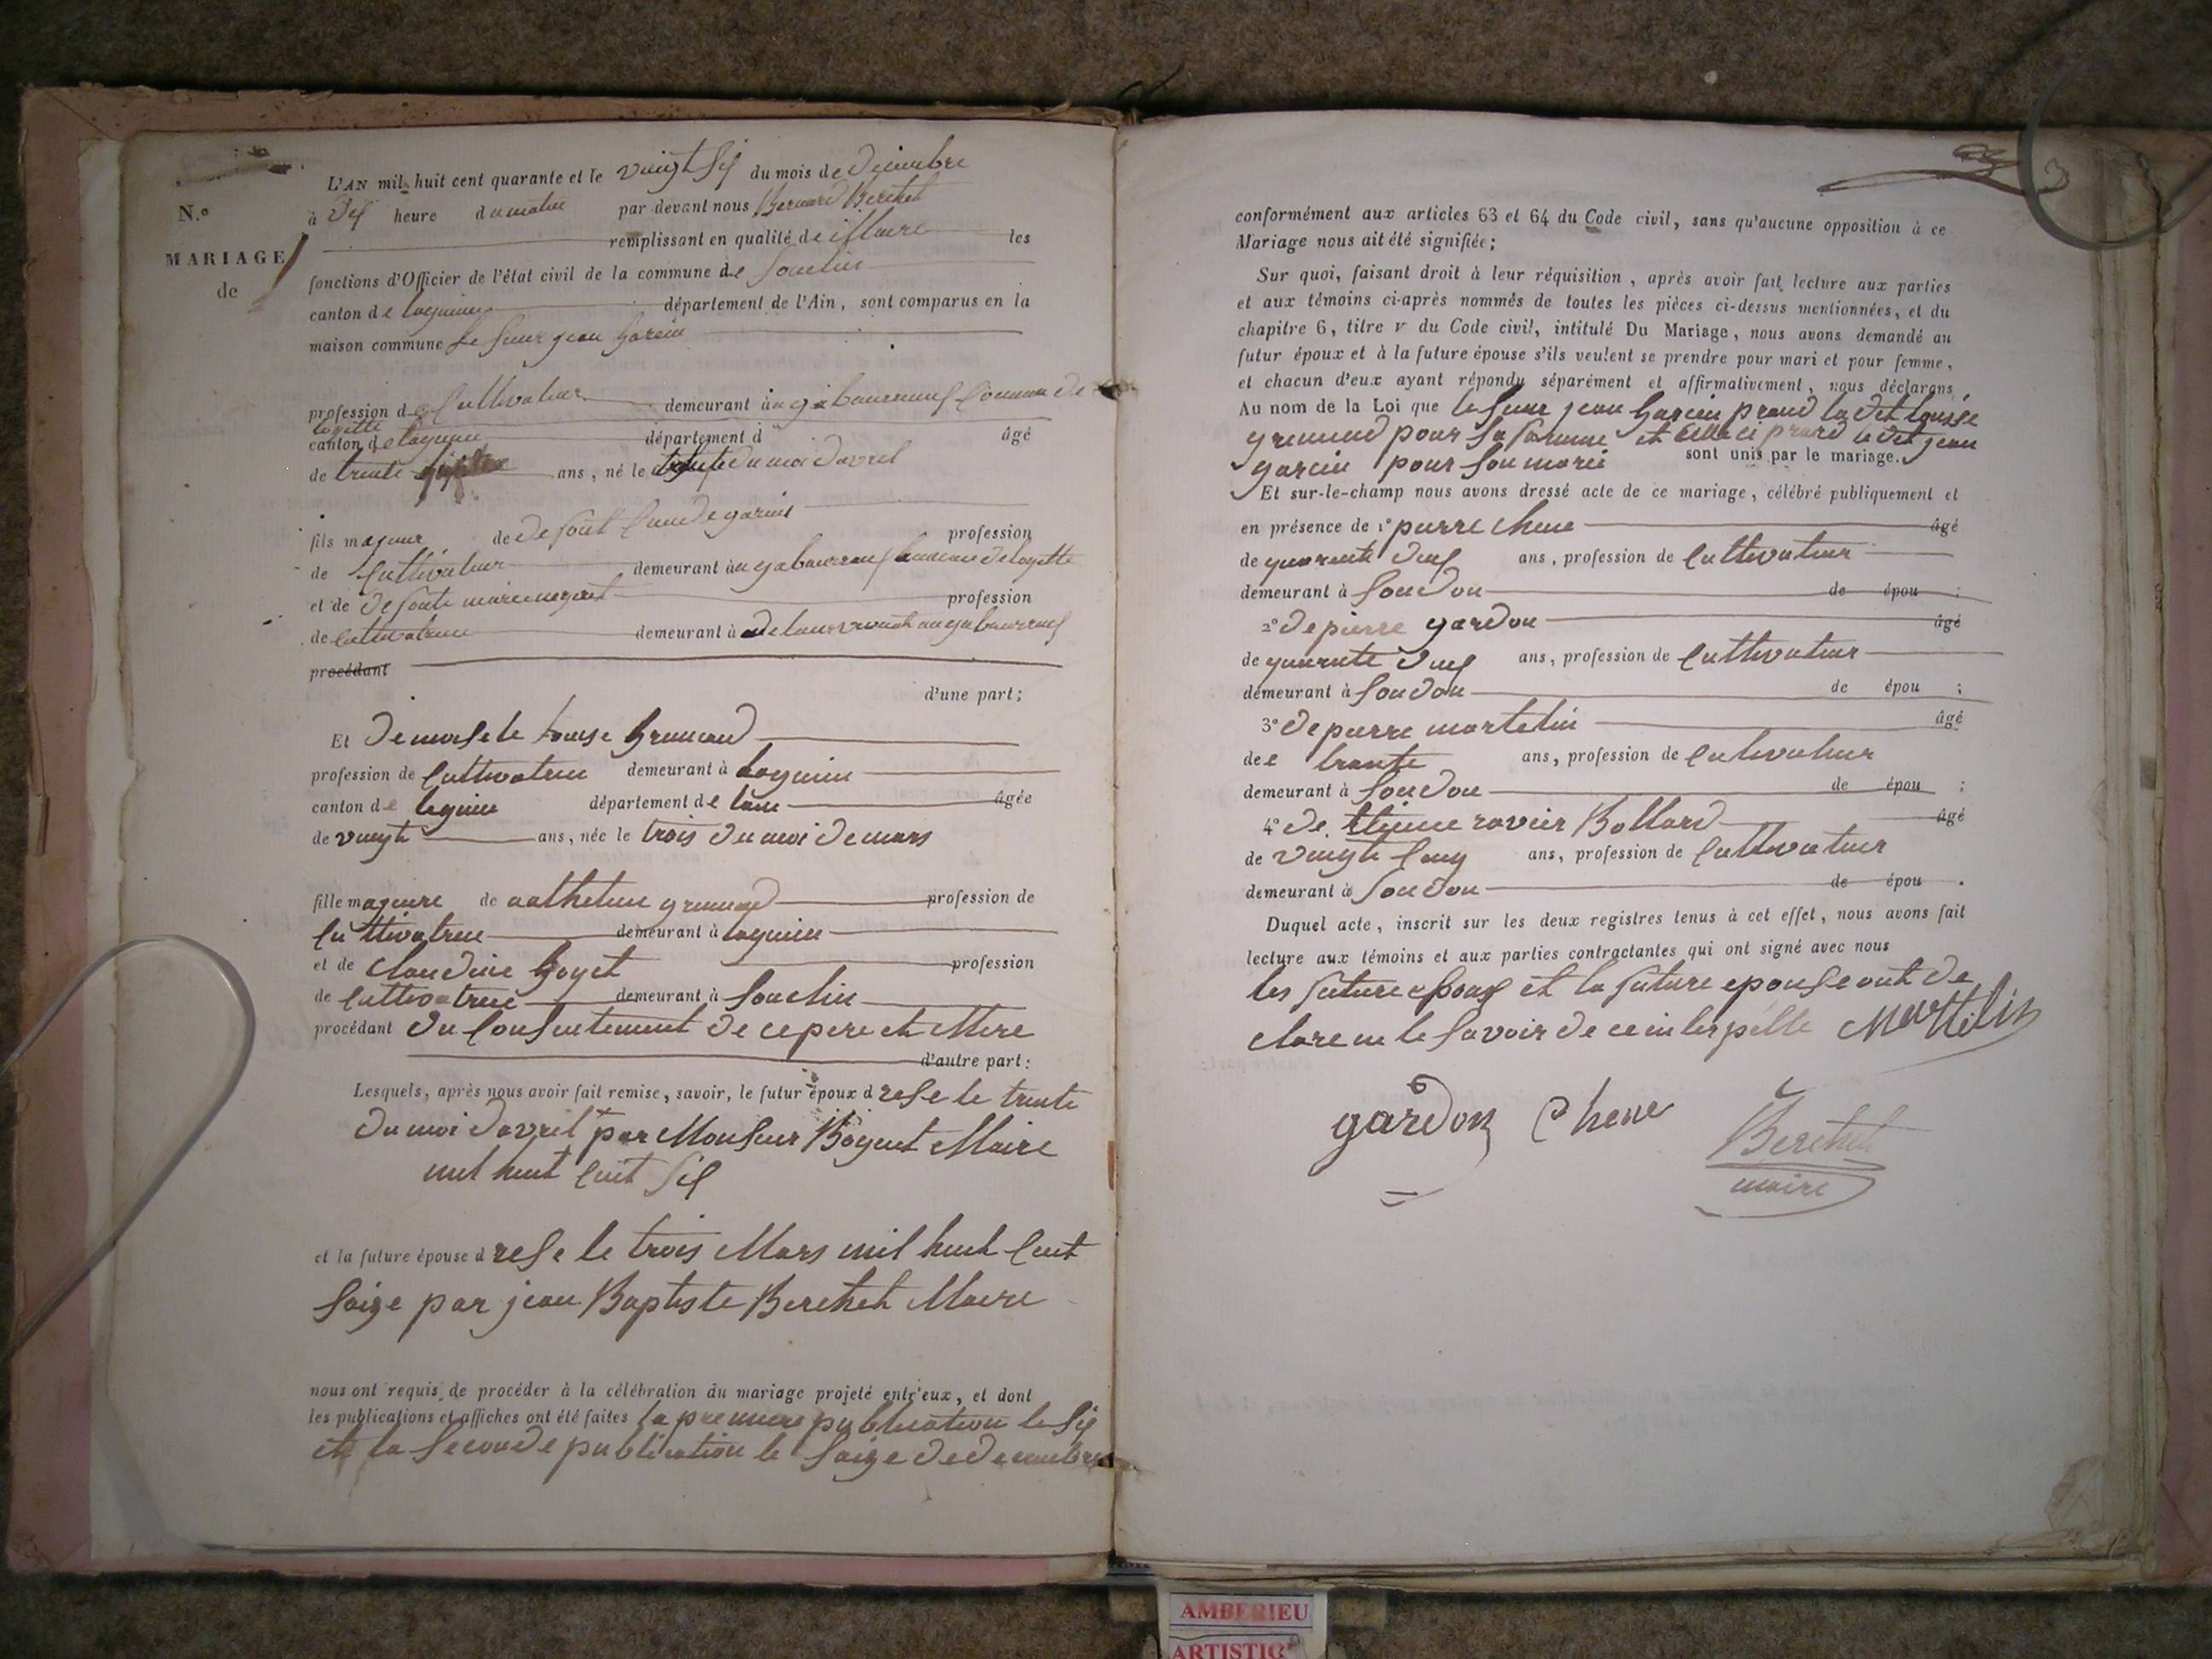 N.º
MARIAGE
de
L'AN mil huit cent quarante et le vingt six du mois de décembre
à dix heure du matin par devant nous Bernard Berthet
remplissant en qualité de Maire les
fonctions d'Officier de l'état civil de la commune de Souclin
canton de lagnieu département de l'Ain, sont comparus en la
maison commune le sieur jean garcin
profession de Cultivateur demeurant à
canton de lagnieu département d âgé
de trente ans, né le du moi d'avril
fils majeur de defout Claude garcin profession
de Cultivateur demeurant à
et de defonte marie profession
de Cultivatrice demeurant à
procédant
d'une part;
Et demoisele Louise gremand
profession de Cultivatrice demeurant à lagnieu
canton de lagnieu département de âgée
de vingt ans, née le trois du moi de mars
fille mageure de anthelme gremand profession de
Cultivatrice demeurant à lagnieu
et de claudine goyet profession
de Cultivatrice demeurant à Souclin
procédant du Consentement de ce pere et Mere
d'autre part:
Lesquels, après nous avoir fait remise, savoir, le futur époux d rese le trente
du moi d'avril par Monsieur Maire
mil huit Cent Six
et la future épouse d rese le trois Mars mil huit Cent
Saize par jean Baptiste Berthet Maire
nous ont requis de procéder à la célébration du mariage projeté entr'eux, et dont
les publications et affiches ont été faites la premiere publication le Six
et la Seconde publication le Saize de decembre
conformément aux articles 63 et 64 du Code civil, sans qu'aucune opposition à ce
Mariage nous ait été signifiée;
Sur quoi, faisant droit à leur réquisition, après avoir fait lecture aux parties
et aux témoins ci-après nommés de toutes les pièces ci-dessus mentionnées, et du
chapitre 6, titre v du Code civil, intitulé Du Mariage, nous avons demandé au
futur époux et à la future épouse s'ils veulent se prendre pour mari et pour femme,
et chacun d'eux ayant répondu séparément et affirmativement, nous déclarons
Au nom de la Loi que le Sieur jean garcin prand la dit louise
gremand pour Sa famme et celle ci prand le dit jean
garcin pour Son marie sont unis par le mariage.
Et sur-le-champ nous avons dressé acte de ce mariage, célébré publiquement et
en présence de 1º pierre chene âgé
de quarante ans, profession de Cultivateur
demeurant à Soudon de épou ;
2º de pierre gardon âgé
de quarante ans, profession de Cultivateur
demeurant à Soudon de épou ;
3º de pierre martelin âgé
de trante ans, profession de Cultivateur
demeurant à Soudon de épou ;
4º de Etienne ravier Bollard âgé
de vingt Cinq ans, profession de Cultivateur
demeurant à Soudon de épou .
Duquel acte, inscrit sur les deux registres tenus à cet effet, nous avons fait
lecture aux témoins et aux parties contractantes qui ont signé avec nous
les future epoux et la future epouse ont de
clare ne le Savoir de ce interpelle Martelin
gardon Chene
Berthet
maire
AMBERIEU
ARTISTIQ